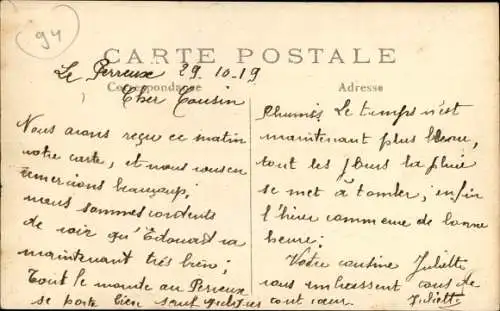 94
CARTE POSTALE
Correspondance
Adresse
Le Perreux 29.10.19
Cher Cousin
Nous avons reçu ce matin
votre carte, et nous vous en
remercions beaucoup;
nous sommes contents
de voir qu'Edouard va
maintenant très bien;
Tout le monde au Perreux
se porte bien sauf quelques
rhumes Le temps n'est
maintenant plus beau,
tout les jours la pluie
se met à tomber, enfin
l'hiver commence de bonne
heure;
Votre cousine Juliette
vous embrassent tous de
tout cœur. Juliette